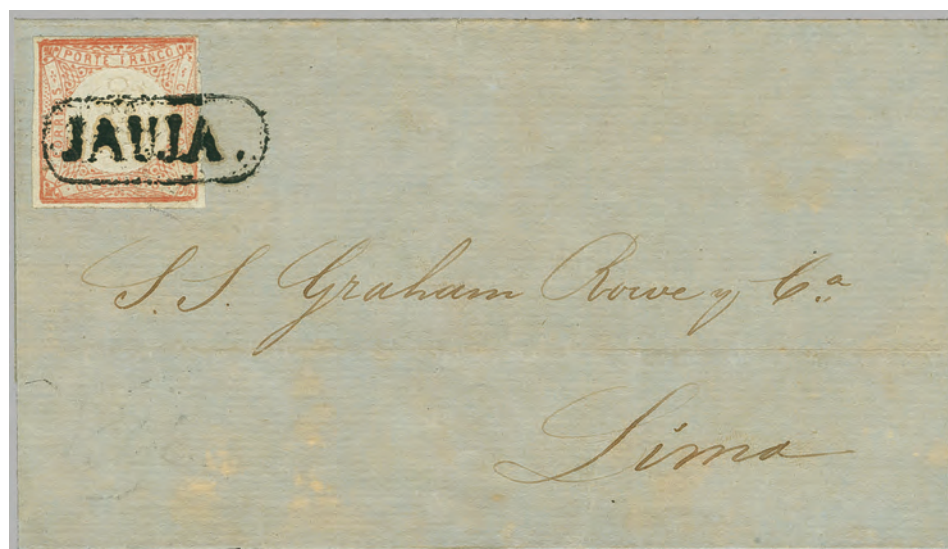 PORTE FRANCO
CORREOS
JAUJA.
S. S. Graham Rowe y Cª
Lima